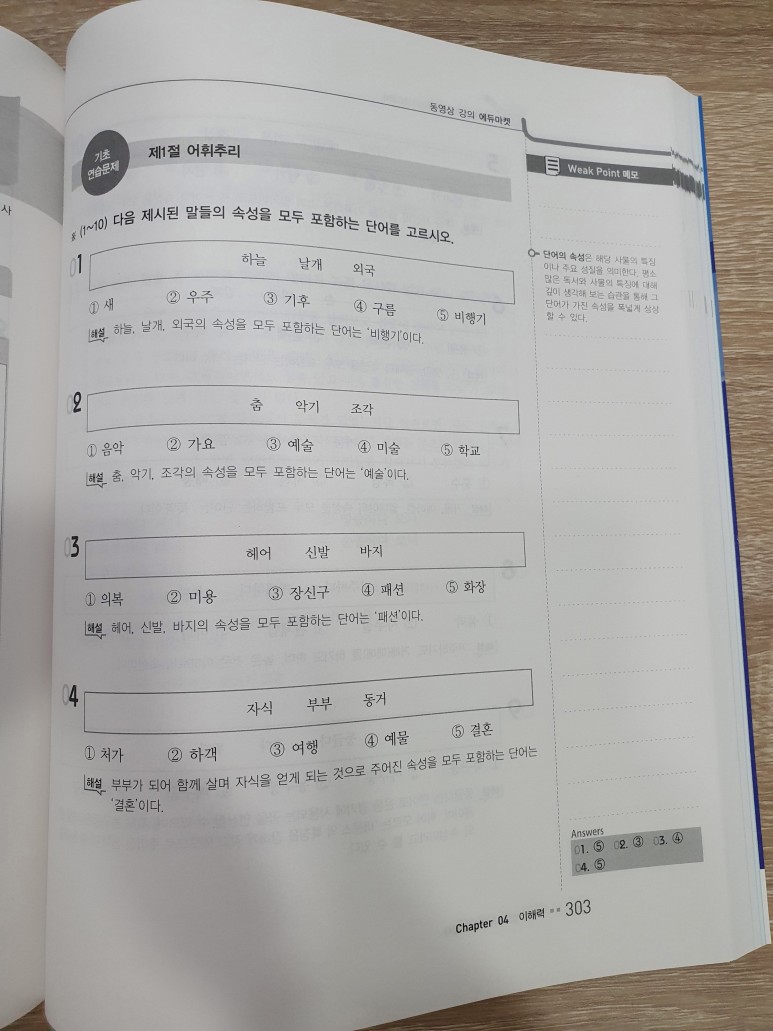 동영상 강의 에듀마켓
기초
연습문제
제1절 어휘추리
Weak Point 메모
사
※ (1~10) 다음 제시된 말들의 속성을 모두 포함하는 단어를 고르시오.
단어의 속성은 해당 사물의 특징
이나 주요 성질을 의미한다. 평소
많은 독서와 사물의 특징에 대해
깊이 생각해 보는 습관을 통해 그
단어가 가진 속성을 폭넓게 상상
할 수 있다.
01 하늘 날개 외국
① 새 ② 우주 ③ 기후 ④ 구름 ⑤ 비행기
해설 하늘, 날개, 외국의 속성을 모두 포함하는 단어는 '비행기'이다.
02 춤 악기 조각
① 음악 ② 가요 ③ 예술 ④ 미술 ⑤ 학교
해설 춤, 악기, 조각의 속성을 모두 포함하는 단어는 '예술'이다.
03 헤어 신발 바지
① 의복 ② 미용 ③ 장신구 ④ 패션 ⑤ 화장
해설 헤어, 신발, 바지의 속성을 모두 포함하는 단어는 '패션'이다.
04 자식 부부 동거
① 처가 ② 하객 ③ 여행 ④ 예물 ⑤ 결혼
해설 부부가 되어 함께 살며 자식을 얻게 되는 것으로 주어진 속성을 모두 포함하는 단어는
'결혼'이다.
Answers
01. ⑤ 02. ③ 03. ④
04. ⑤
Chapter 04 이해력 303